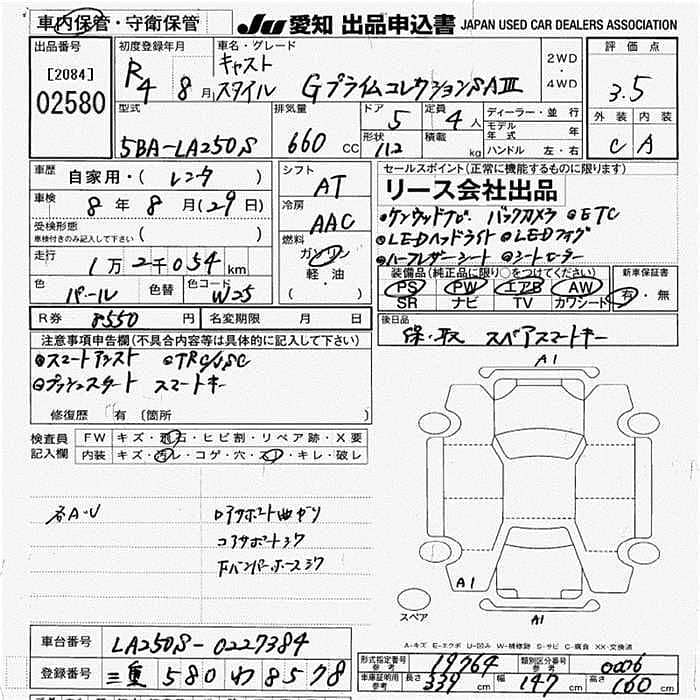 車内保管・守衛保管
JU 愛知 出品申込書 JAPAN USED CAR DEALERS ASSOCIATION
出品番号
[2084]
02580
初度登録年月
R4 8月
車名・グレード
キャスト
スタイル Gプライムコレクション SAⅢ
2WD
・
4WD
評価点
3.5
外装 内装
C A
型式
5BA-LA250S
排気量
660 cc
ドア
5
定員
4人
形状
積載
kg
ディーラー・並行
モデル年式 年
ハンドル 左・右
車歴
自家用・( レンタ )
車検
8年8月(29日)
受検形態
車検付きのみ記入して下さい ( )
走行
1万2千054km
色
パール
色替
色コード
W25
シフト
AT
冷房
AAC
燃料
ガソリン
軽・油
( )
セールスポイント(正常に機能するものに限ります)
リース会社出品
ケンウッドナビ バックカメラ ETC
LEDヘッドライト LEDフォグ
ハーフレザーシート シートヒーター
装備品(純正品に限り○をつけてください)
PS PW エアB AW
SR ナビ TV カワシート
新車保証書
有・無
R券 8550円
名変期限 月 日
後日品
保・取 スペアスマートキー
注意事項申告欄(不具合内容等は具体的に記入して下さい)
スマートアシスト TRC/VSC
プッシュスタート スマートキー
修復歴 有(箇所 )
検査員
記入欄
FW キズ・飛石・ヒビ割・リペア跡・X要
内装 キズ・汚レ・コゲ・穴・スレ・キレ・破レ
各A・U
コアサポートサビ
A1
A1
A1
スペア
A-キズ E-エクボ U-凹み W-補修跡 S-サビ C-腐食 XX-交換済
車台番号 LA250S-0227384
登録番号 三重 580 わ 8578
形式指定番号
参考
19764
類別区分番号
参考
0006
車庫証明用
参考
長さ 339cm 幅 147cm 高さ 160cm